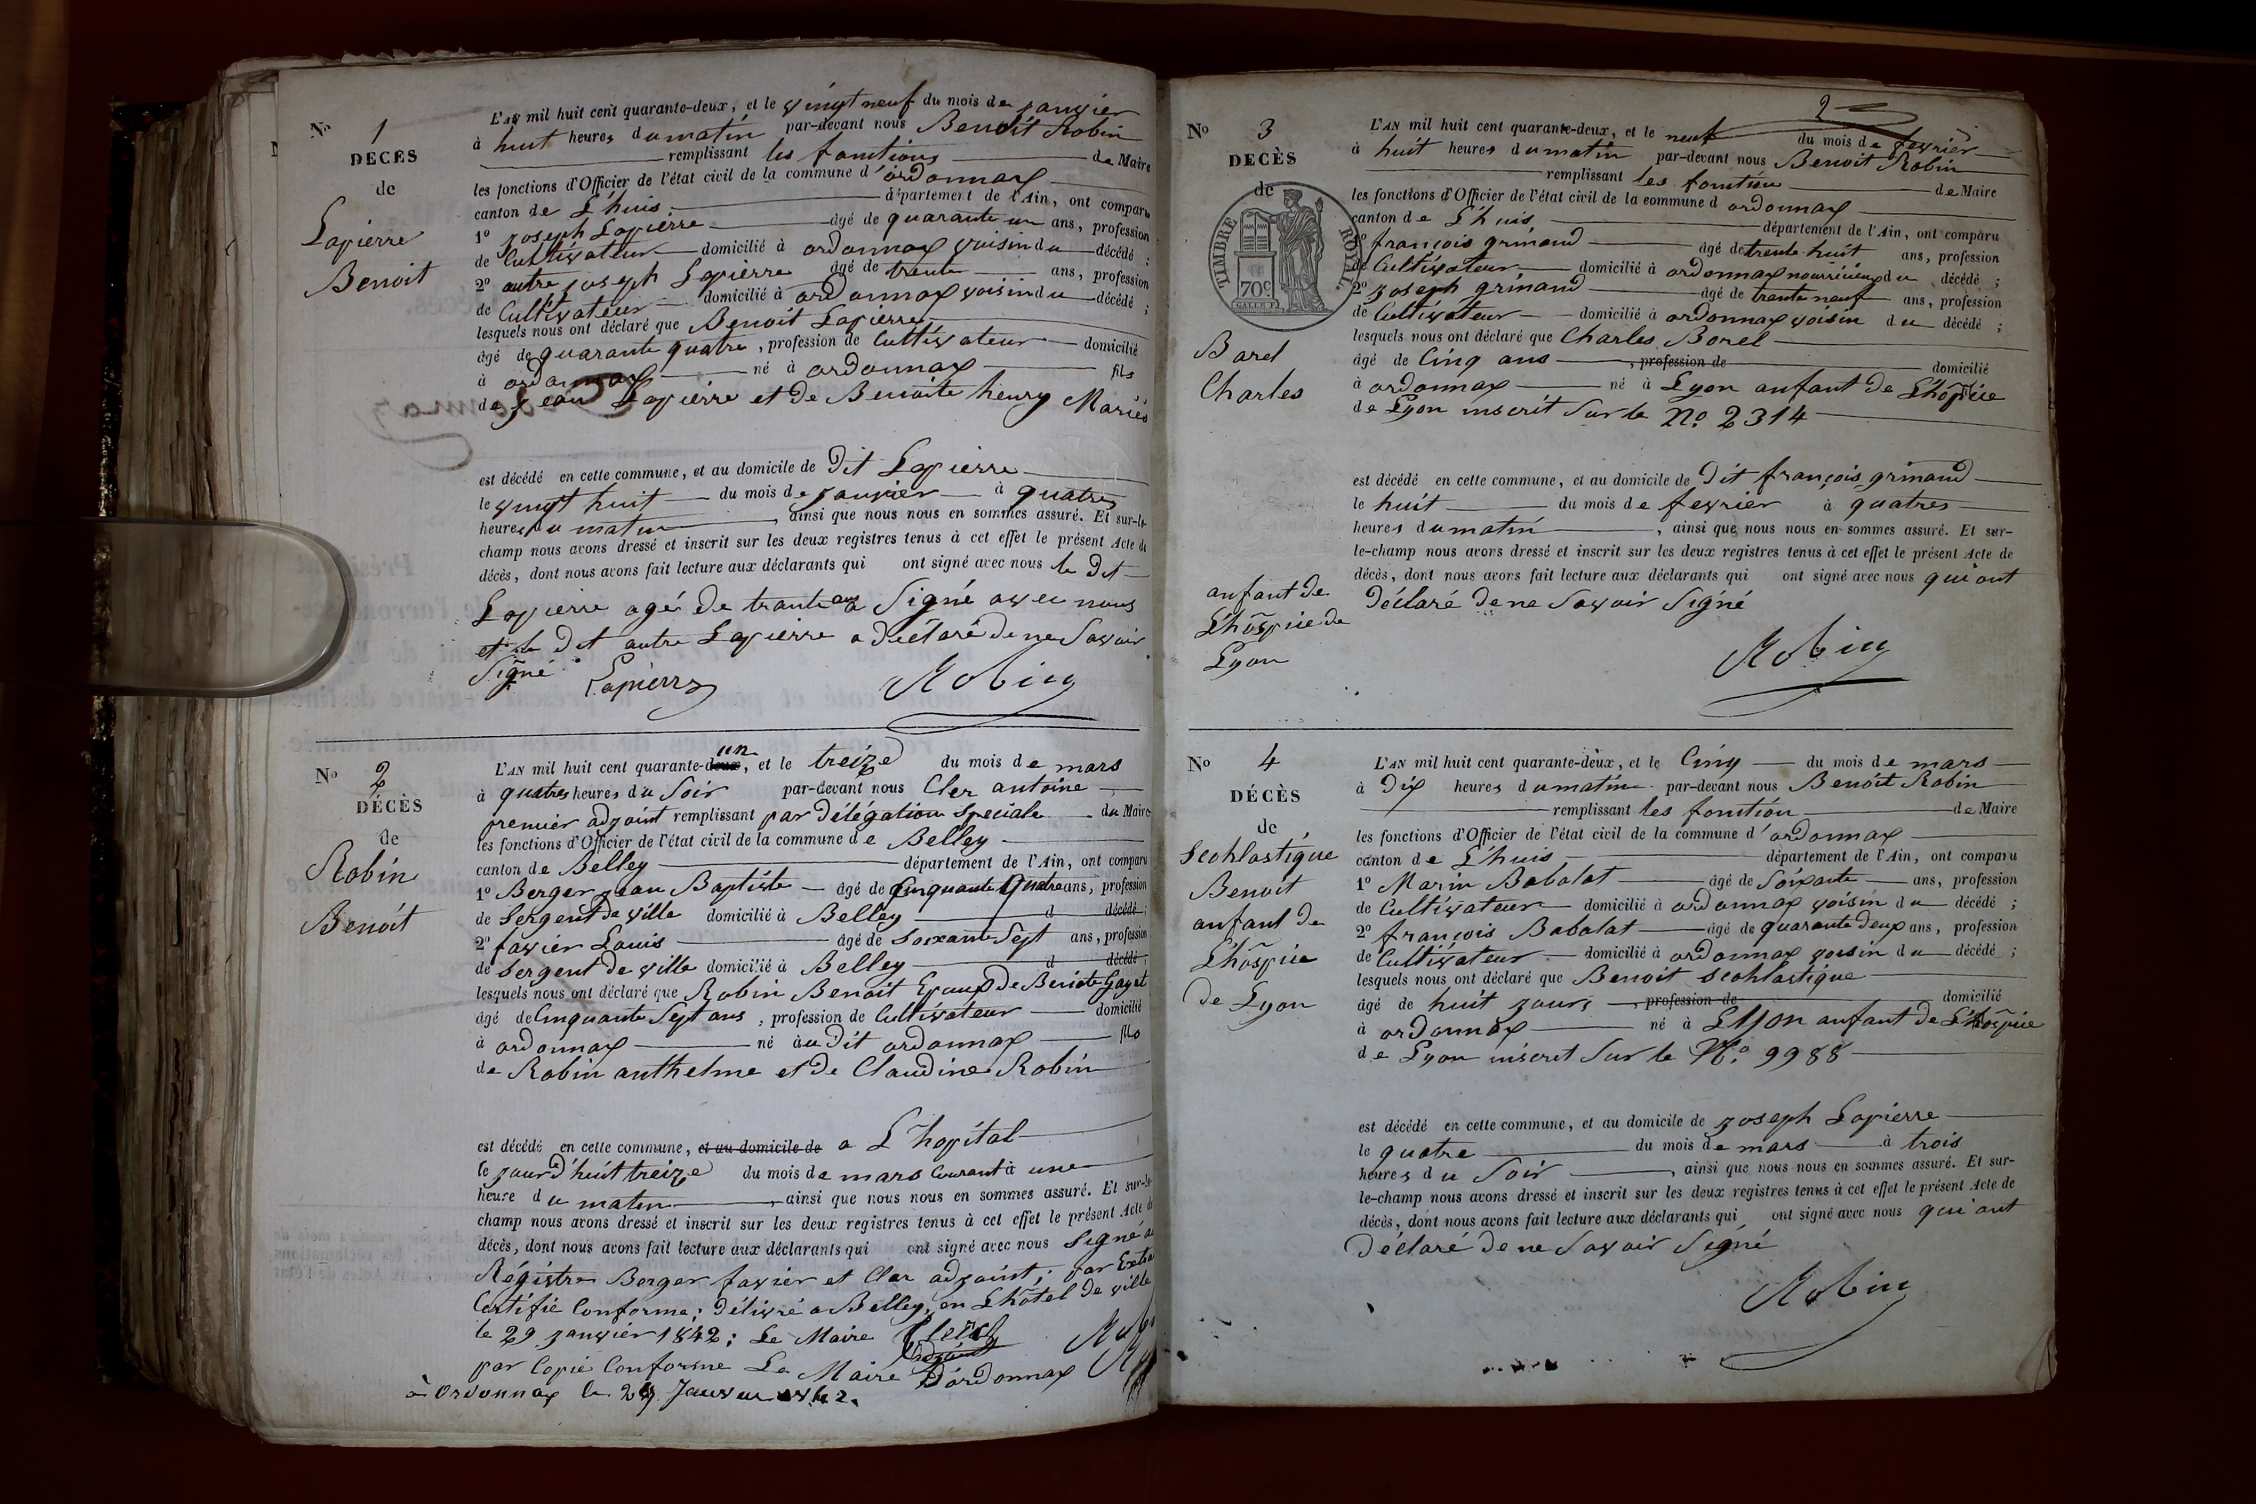 No 1
DECÈS
de
Lapierre
Benoit
L'AN mil huit cent quarante-deux, et le vingt neuf du mois de janvier
à huit heures du matin par-devant nous Benoit Robin
remplissant les fonctions de Maire
les fonctions d'Officier de l'état civil de la commune d'ordonnax
canton de L'huis département de l'Ain, ont comparu
1o joseph Lapierre âgé de quarante un ans, profession
de Cultivateur domicilié à ordonnax voisin du décédé ;
2o autre joseph Lapierre âgé de trente ans, profession
de Cultivateur domicilié à ordonnax voisin du décédé ;
lesquels nous ont déclaré que Benoit Lapierre
âgé de quarante quatre, profession de Cultivateur domicilié
à ordonnax né à ordonnax fils
de jean Lapierre et de Benoite henry Mariés
est décédé en cette commune, et au domicile de Dit Lapierre
le vingt huit du mois de janvier à quatres
heures du matin, ainsi que nous nous en sommes assuré. Et sur-le-
champ nous avons dressé et inscrit sur les deux registres tenus à cet effet le présent Acte de
décès, dont nous avons fait lecture aux déclarants qui ont signé avec nous le Dit
Lapierre agé de trante ans a Signé avec nous
et le Dit autre Lapierre a déclaré de ne Savoir
Signé Lapierre Robin
No 2
DÉCÈS
de
Robin
Benoit
L'AN mil huit cent quarante-deux un, et le treize du mois de mars
à quatres heures du Soir par-devant nous Cler antoine
premier adjoint remplissant par Délégation Speciale du Maire
les fonctions d'Officier de l'état civil de la commune de Belley
canton de Belley département de l'Ain, ont comparu
1o Berger jean Baptiste âgé de Cinquante Quatre ans, profession
de Sergent De ville domicilié à Belley d décédé ;
2o favier Louis âgé de Soixante Sept ans, profession
de Sergent De ville domicilié à Belley d décédé ;
lesquels nous ont déclaré que Robin Benoit Epoux De Beniote Gayet
âgé de Cinquante Sept ans, profession de Cultivateur domicilié
à ordonnax né au Dit ordonnax fils
de Robin anthelme et De Claudine Robin
est décédé en cette commune, et au domicile de a L'hopital
le jourd'huit treize du mois de mars Courant à une
heure du matin, ainsi que nous nous en sommes assuré. Et sur-le-
champ nous avons dressé et inscrit sur les deux registres tenus à cet effet le présent Acte de
décès, dont nous avons fait lecture aux déclarants qui ont signé avec nous Signé au
Régistre Berger favier et Cler adjoint ; par
Certifié Conforme ; Délivré a Belley, en L'hôtel De ville
le 29 janvier 1842 ; Le Maire
par Copie Conforme Le Maire D'ordonnax
à Ordonnax le 29 Janvier 1842.
2
No 3
DECÈS
de
TIMBRE ROYAL
70c
Barel
Charles
anfant de
L'hôspice de
Lyon
L'AN mil huit cent quarante-deux, et le neuf du mois de fevrier
à huit heures du matin par-devant nous Benoit Robin
remplissant les fonction de Maire
les fonctions d'Officier de l'état civil de la commune d ordonnax
canton de L'huis département de l'Ain, ont comparu
1o françois grinand âgé de trente huit ans, profession
de Cultivateur domicilié à ordonnax nourricieux du décédé ;
2o joseph grinand âgé de trante neuf ans, profession
de Cultivateur domicilié à ordonnax voisin du décédé ;
lesquels nous ont déclaré que Charles Borel
âgé de Cinq ans, profession de domicilié
à ordonnax né à Lyon anfant de L'hôspice
de Lyon inscrit Sur le No. 2314
est décédé en cette commune, et au domicile de Dit françois grinand
le huit du mois de fevrier à quatres
heures du matin, ainsi que nous nous en sommes assuré. Et sur-
le-champ nous avons dressé et inscrit sur les deux registres tenus à cet effet le présent Acte de
décès, dont nous avons fait lecture aux déclarants qui ont signé avec nous qui ont
Déclaré De ne Savoir Signé
Robin
No 4
DÉCÈS
de
Scohlastique
Benoit
anfant de
L'hôspice
De Lyon
L'AN mil huit cent quarante-deux, et le Cinq du mois de mars
à Dix heures du matin par-devant nous Benoit Robin
remplissant les fonction de Maire
les fonctions d'Officier de l'état civil de la commune d'ordonnax
canton de L'huis département de l'Ain, ont comparu
1o Marin Babolat âgé de Soixante ans, profession
de Cultivateur domicilié à ordonnax voisin du décédé ;
2o françois Babolat âgé de quarante deux ans, profession
de Cultivateur domicilié à ordonnax voisin du décédé ;
lesquels nous ont déclaré que Benoit Scohlastique
âgé de huit jours, profession de domicilié
à ordonnax né à LYon anfant de L'hôspice
de Lyon inscrit Sur le No. 9988
est décédé en cette commune, et au domicile de joseph Lapierre
le quatre du mois de mars à trois
heures du Soir, ainsi que nous nous en sommes assuré. Et sur-
le-champ nous avons dressé et inscrit sur les deux registres tenus à cet effet le présent Acte de
décès, dont nous avons fait lecture aux déclarants qui ont signé avec nous qui ont
Déclaré De ne Savoir Signé
Robin